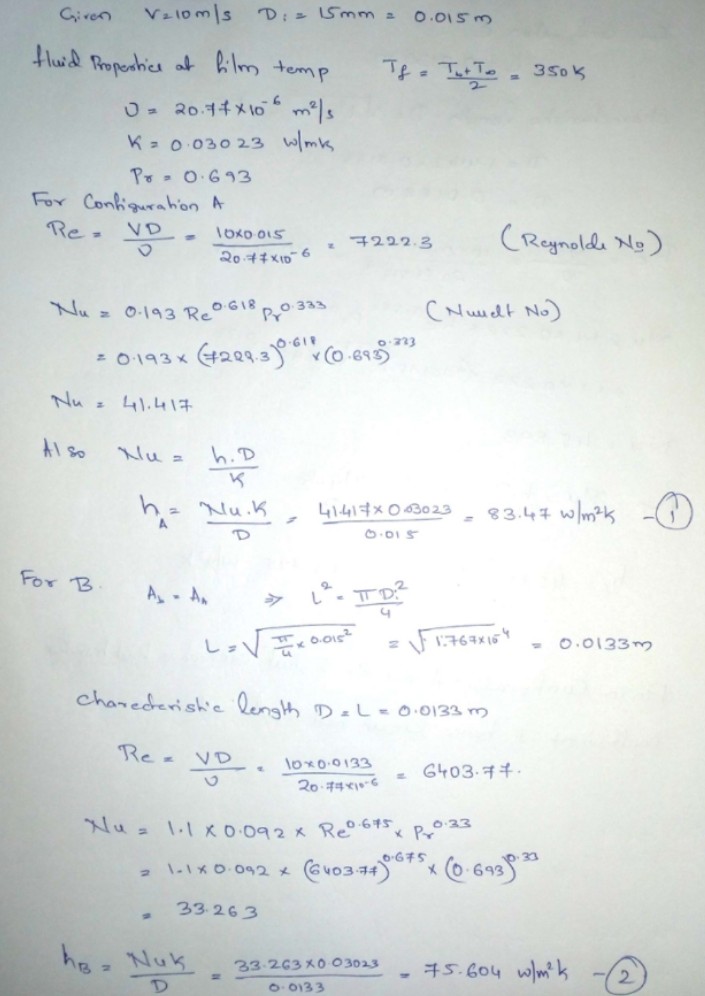 Given V=10m/s Di = 15mm = 0.015m
fluid Properties at film temp Tf = (Ts+T∞)/2 = 350K
υ = 20.77×10^-6 m²/s
K = 0.03023 W/mk
Pr = 0.693
For Configuration A
Re = VD/υ = 10×0.015/20.77×10^-6 = 7222.3 (Reynolds No)
Nu = 0.193 Re^0.618 Pr^0.333 (Nusselt No)
= 0.193 × (7222.3)^0.618 × (0.693)^0.333
Nu = 41.417
Also Nu = h.D/K
hA = Nu.K/D = 41.417×0.03023/0.015 = 83.47 W/m²K -①
For B. As = AA ⇒ L² = πDi²/4
L = √(π/4 × 0.015²) = √(1.767×10^-4) = 0.0133m
Charecteristic length D = L = 0.0133 m
Re = VD/υ = 10×0.0133/20.77×10^-6 = 6403.77.
Nu = 1.1 × 0.092 × Re^0.675 × Pr^0.33
= 1.1 × 0.092 × (6403.77)^0.675 × (0.693)^0.33
= 33.263
hB = NuK/D = 33.263×0.03023/0.0133 = 75.604 W/m²k -②